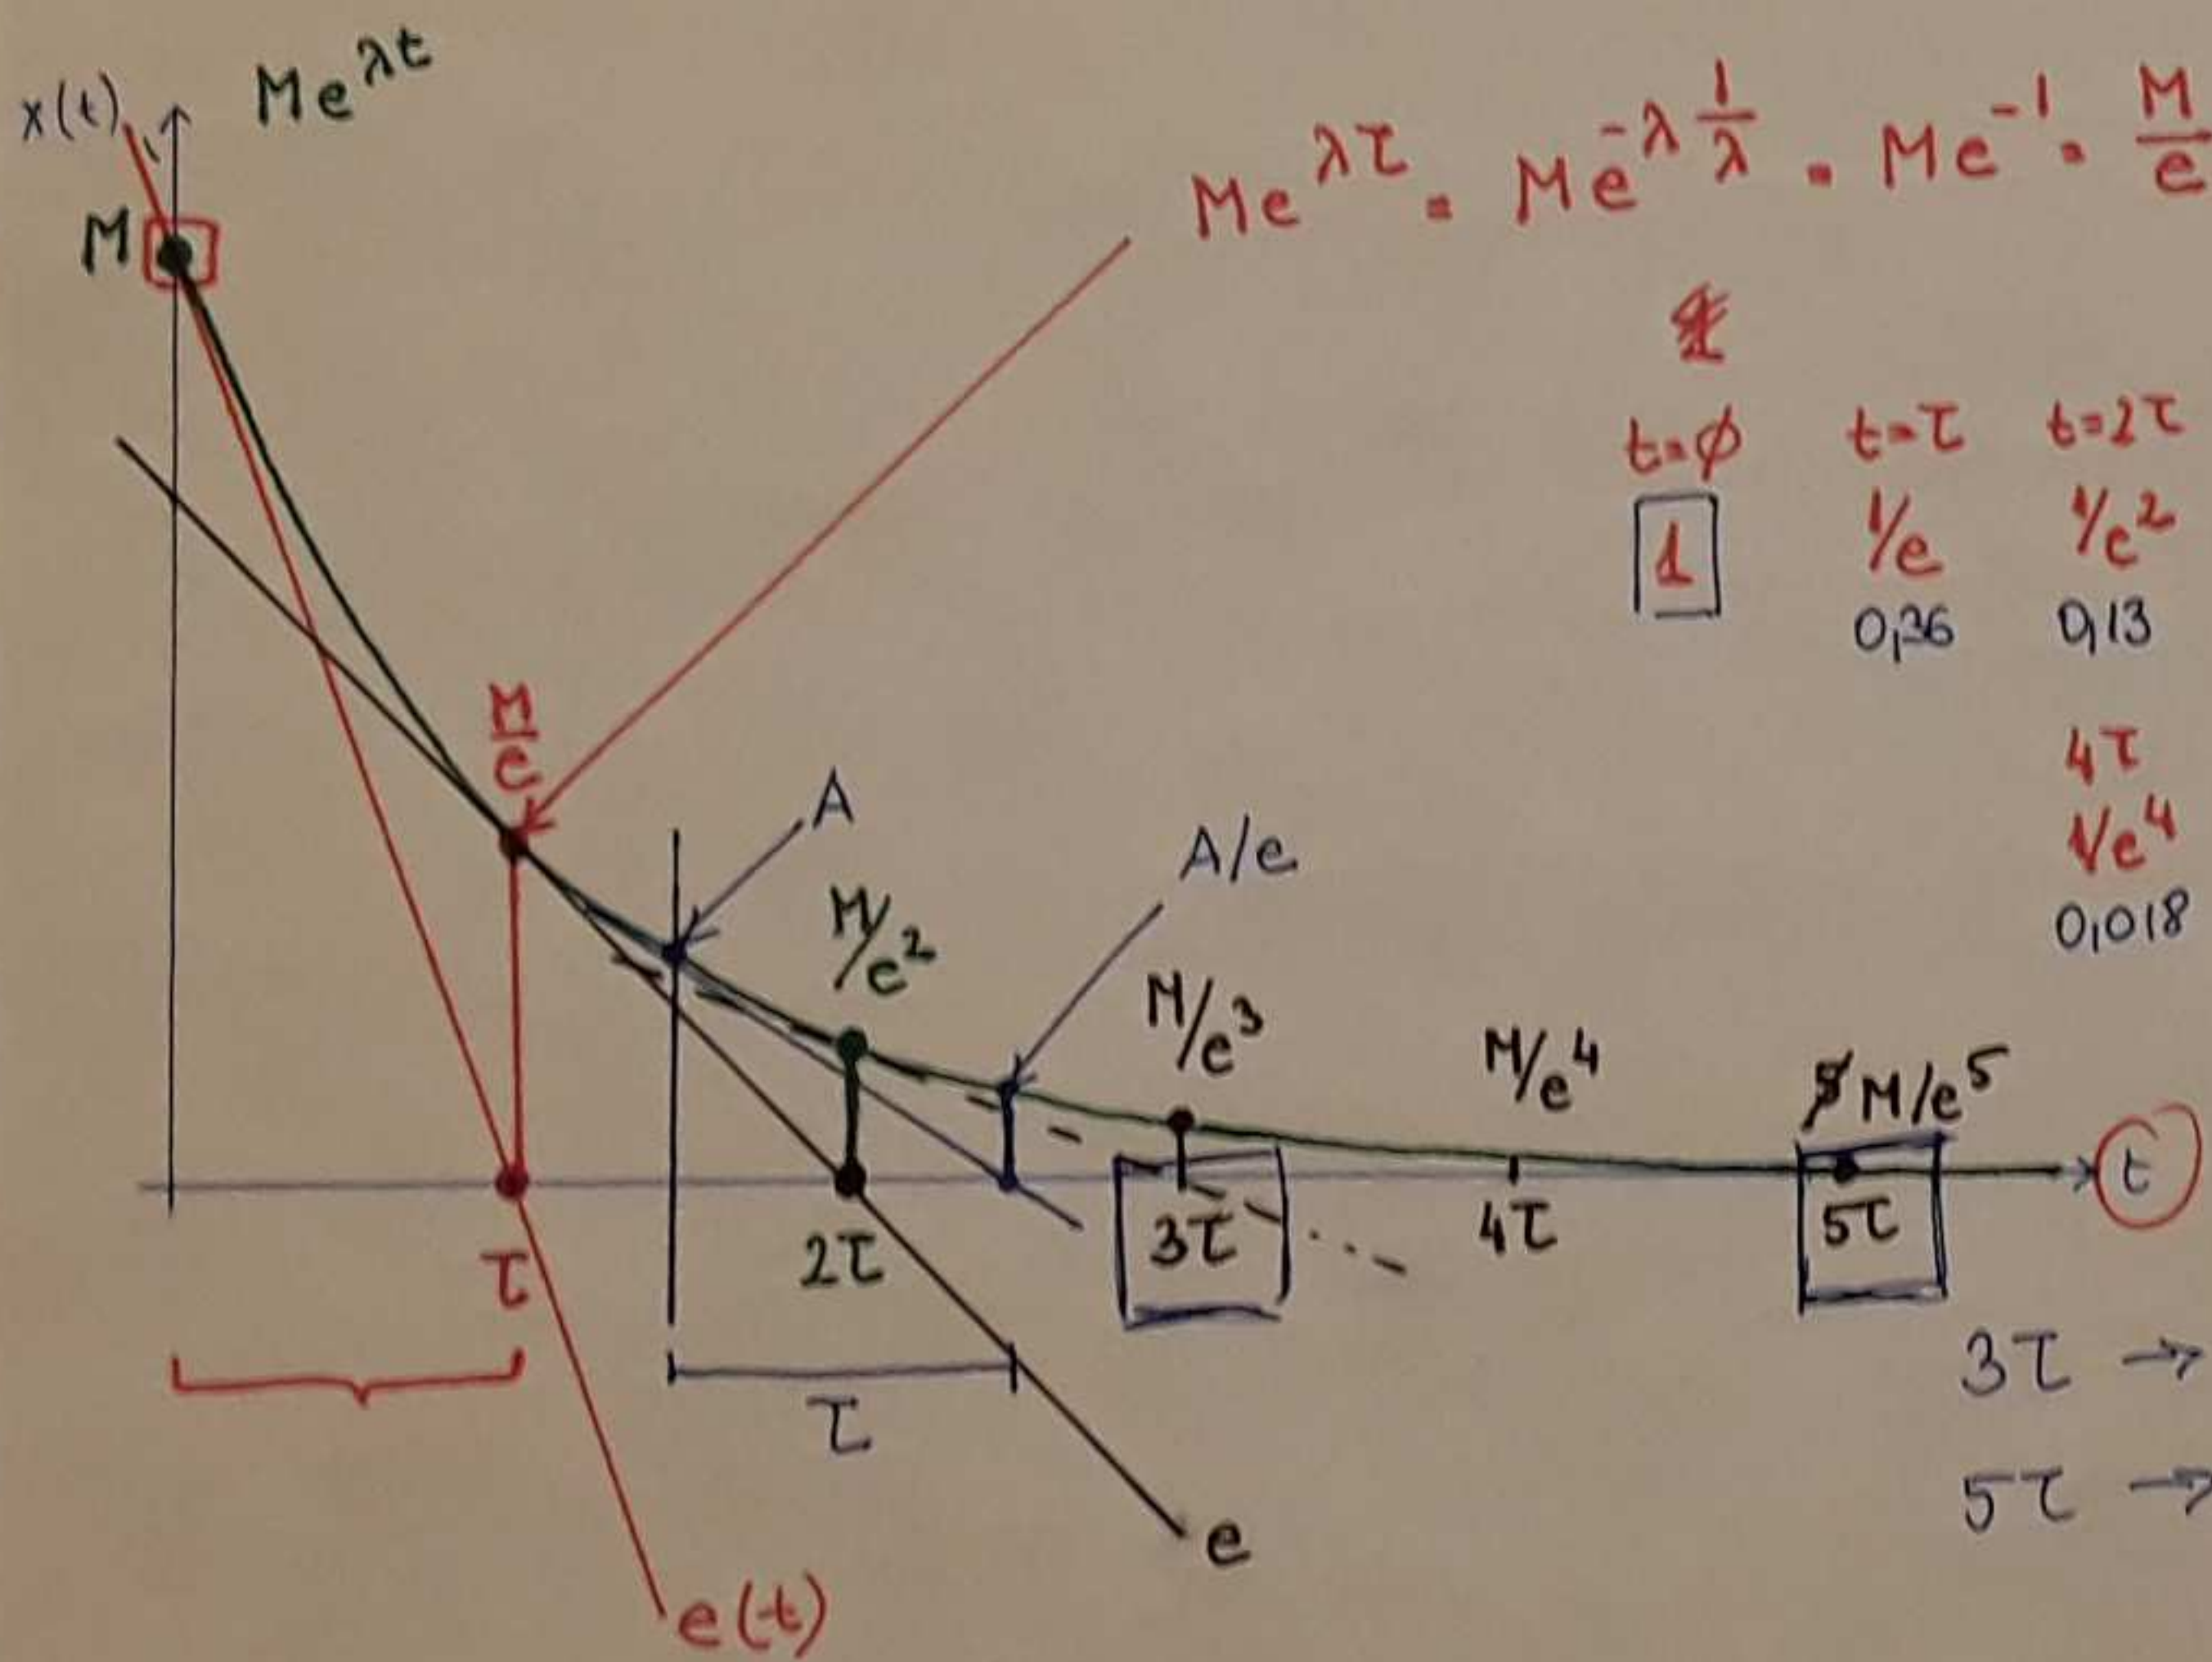 x(t)
Me^{λt}
M
Me^{λτ} = Me^{-λ 1/λ} = Me^{-1} = M/e
t=∅ t=τ t=2τ
1 1/e 1/e²
0,36 0,13
4τ
1/e⁴
0,018
M/e
A
A/e
M/e²
M/e³
M/e⁴
M/e⁵
t
τ
2τ
3τ
4τ
5τ
τ
3τ →
5τ →
e
e(t)